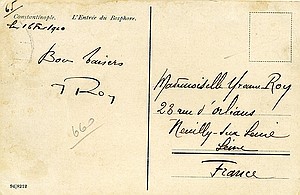 65
Constantinople. L'Entrée du Bosphore.
le 16 Fev 1920
Bons baisers
Y Roy
660
Mademoiselle Yvonne Roy
28 rue d'Orléans
Neuilly-sur-Seine
Seine
France